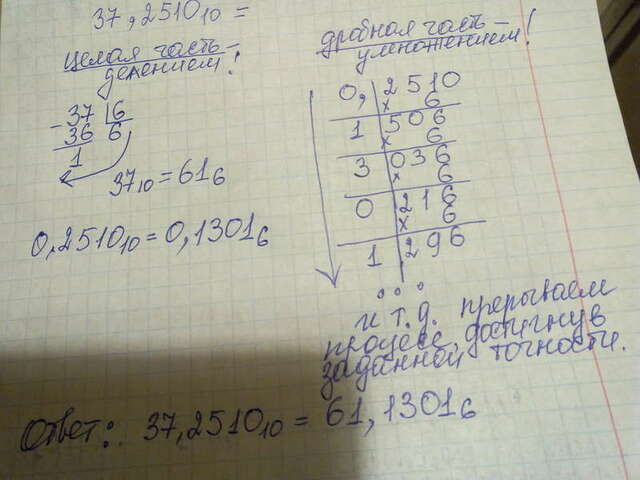 37,2510₁₀ =
целая часть –
делением!
37 |6
– 36 6
1
37₁₀ = 61₆
0,2510₁₀ = 0,1301₆
дробная часть –
умножением!
0, 2510
x 6
1 506
x 6
3 036
x 6
0 216
x 6
1 296
° ° °
и т.д. прерываем
процесс, достигнув
заданной точности.
Ответ: 37,2510₁₀ = 61,1301₆